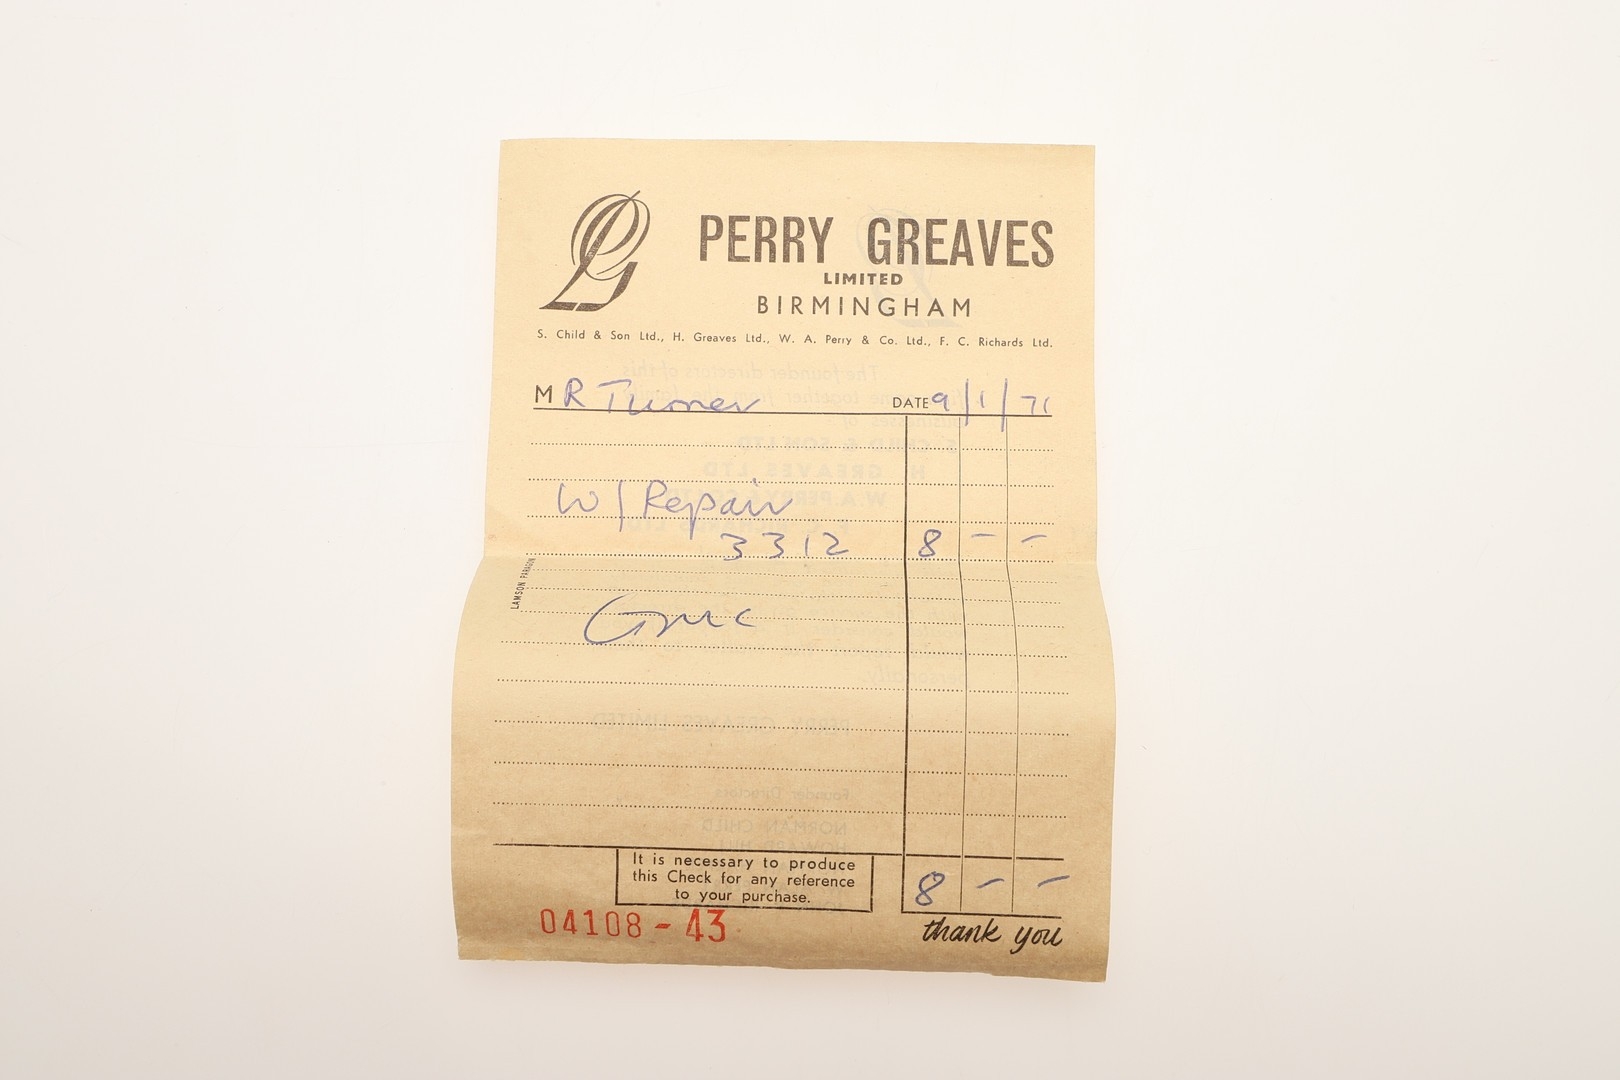 PERRY GREAVES
LIMITED
BIRMINGHAM
S. Child & Son Ltd., H. Greaves Ltd., W. A. Perry & Co. Ltd., F. C. Richards Ltd.
M R Turner DATE 9/1/71
W/Repair
3312 8 - -
LAMSON PARAGON
It is necessary to produce
this Check for any reference
to your purchase.
8 - -
04108-43
thank you